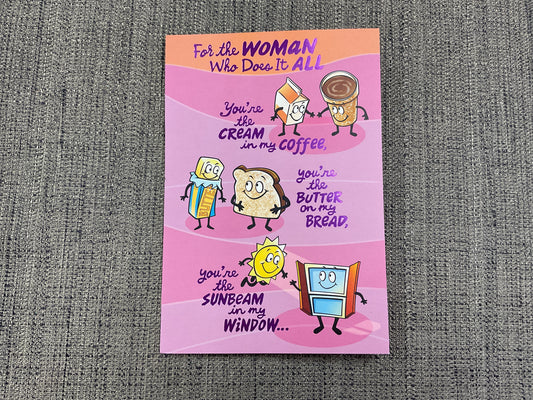 For the WOMAN
Who Does It ALL
You're
the
CREAM
in my COFFEE,
BUTTER
you're
the
BUTTER
on my
BREAD,
you're
the
SUNBEAM
in my
WINDOW...